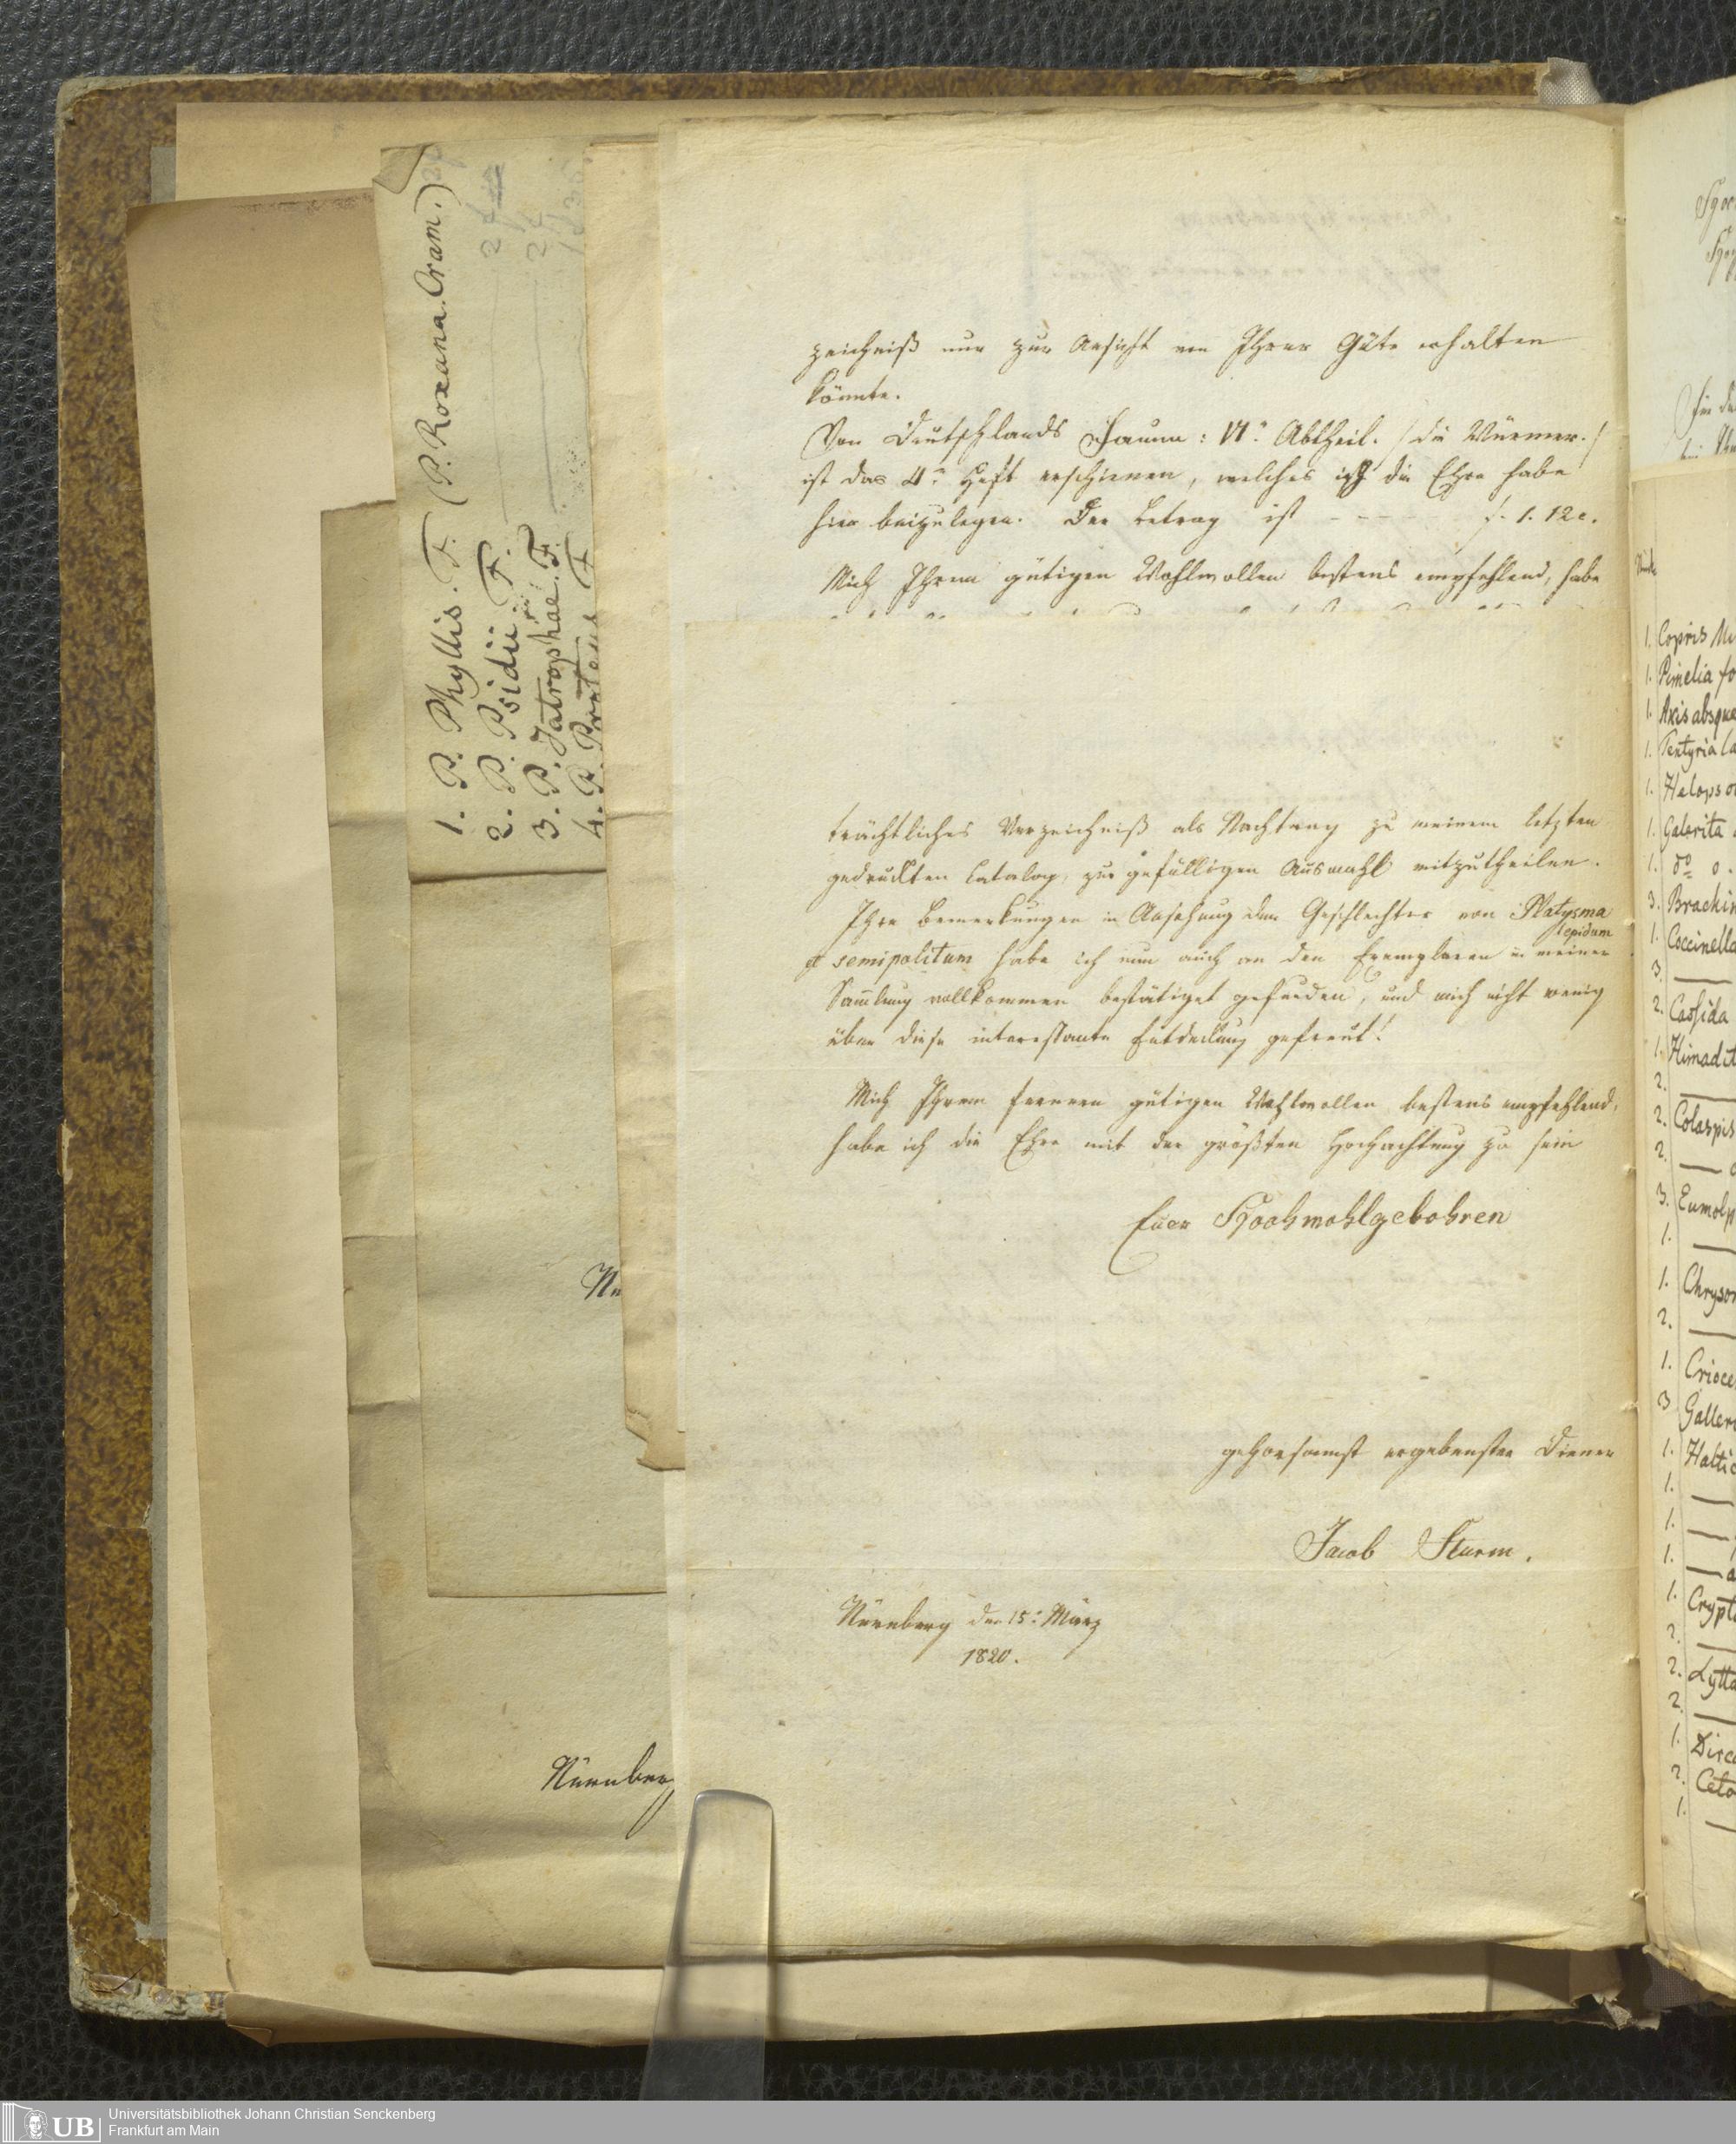 zeichniß nur zur Ansicht von Ihrer Güte erhalten
könnte.
Von Deutschlands Fauna: VIe Abtheil. /die Würmer./
ist das 4e Heft erschienen, welches ich die Ehre habe
hier beizulegen. Der Betrag ist - - - - f. 1. 12 c.
Mich Ihrem gütigen Wohlwollen bestens empfehlend, habe
trächtliches Verzeichniß als Nachtrag zu meinem letzten
gedruckten Catalog, zur gefälligen Auswahl mitzutheilen.
Ihre Bemerkungen in Ansehung der Geschlechter von Platysma
lepidum
& semipolitum habe ich nun auch an den Exemplaren in meiner
Sam̄lung vollkommen bestätiget gefunden, und mich nicht wenig
über diese interessante Entdeckung gefreut!
Mich Ihrem fernern gütigen Wohlwollen bestens empfehlend,
habe ich die Ehre mit der größten Hochachtung zu sein
Euer Hochwohlgebohren
gehorsamst ergebenster Diener
Jacob Sturm.
Nürnberg den 15: März
1820.
1. P. Phyllis. F. (P. Roxana. Cram.)
2. P. Psidii. F.
3. P. Jatrophae. F.
4. P. Proteus F
Nu
Nürnberg
1. Copris
1. Pimelia
1. Akis absque
1. Tentyria
1. Helops
1. Galerita
1. do
3. Brachin
1. Coccinella
3. —
2. Cassida
1.
2. —
2. Colaspis
2. —
3. Eumolp
1. —
1. Chryso
2. —
1. Crioce
3 Galler
1. Haltic
1. —
1. —
1. —
1. Crypt
2. —
2. Lytta
2. —
1. Dirc
2. Ceto
1. —
UB
Universitätsbibliothek Johann Christian Senckenberg
Frankfurt am Main